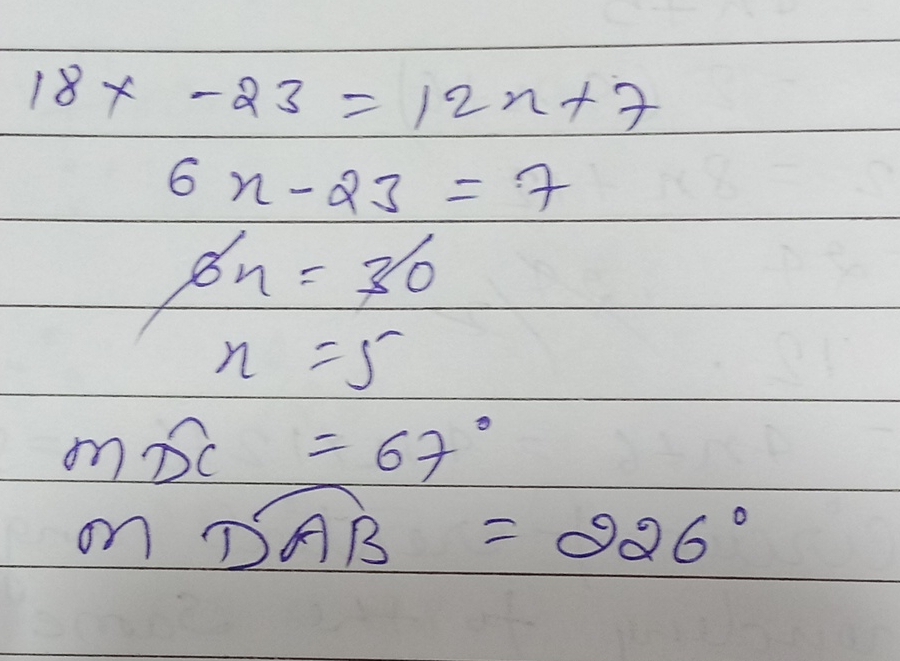 18x - 23 = 12x + 7
6x - 23 = 7
6x = 30
x = 5
m DC = 67°
m DAB = 226°